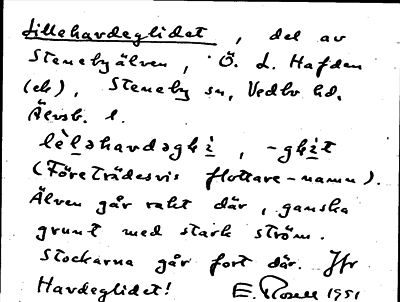 Lillehardeglidet, del av
Stenebyälven, Ö. L. Hafden
(eh), Steneby sn, Vedbo hd.
Älvsb. l.
(Företrädesvis flottare-namn).
Älven går rakt där, ganska
grunt med stark ström.
Stockarna går fort där. Jfr
Hardeglidet! E. Rosell 1951